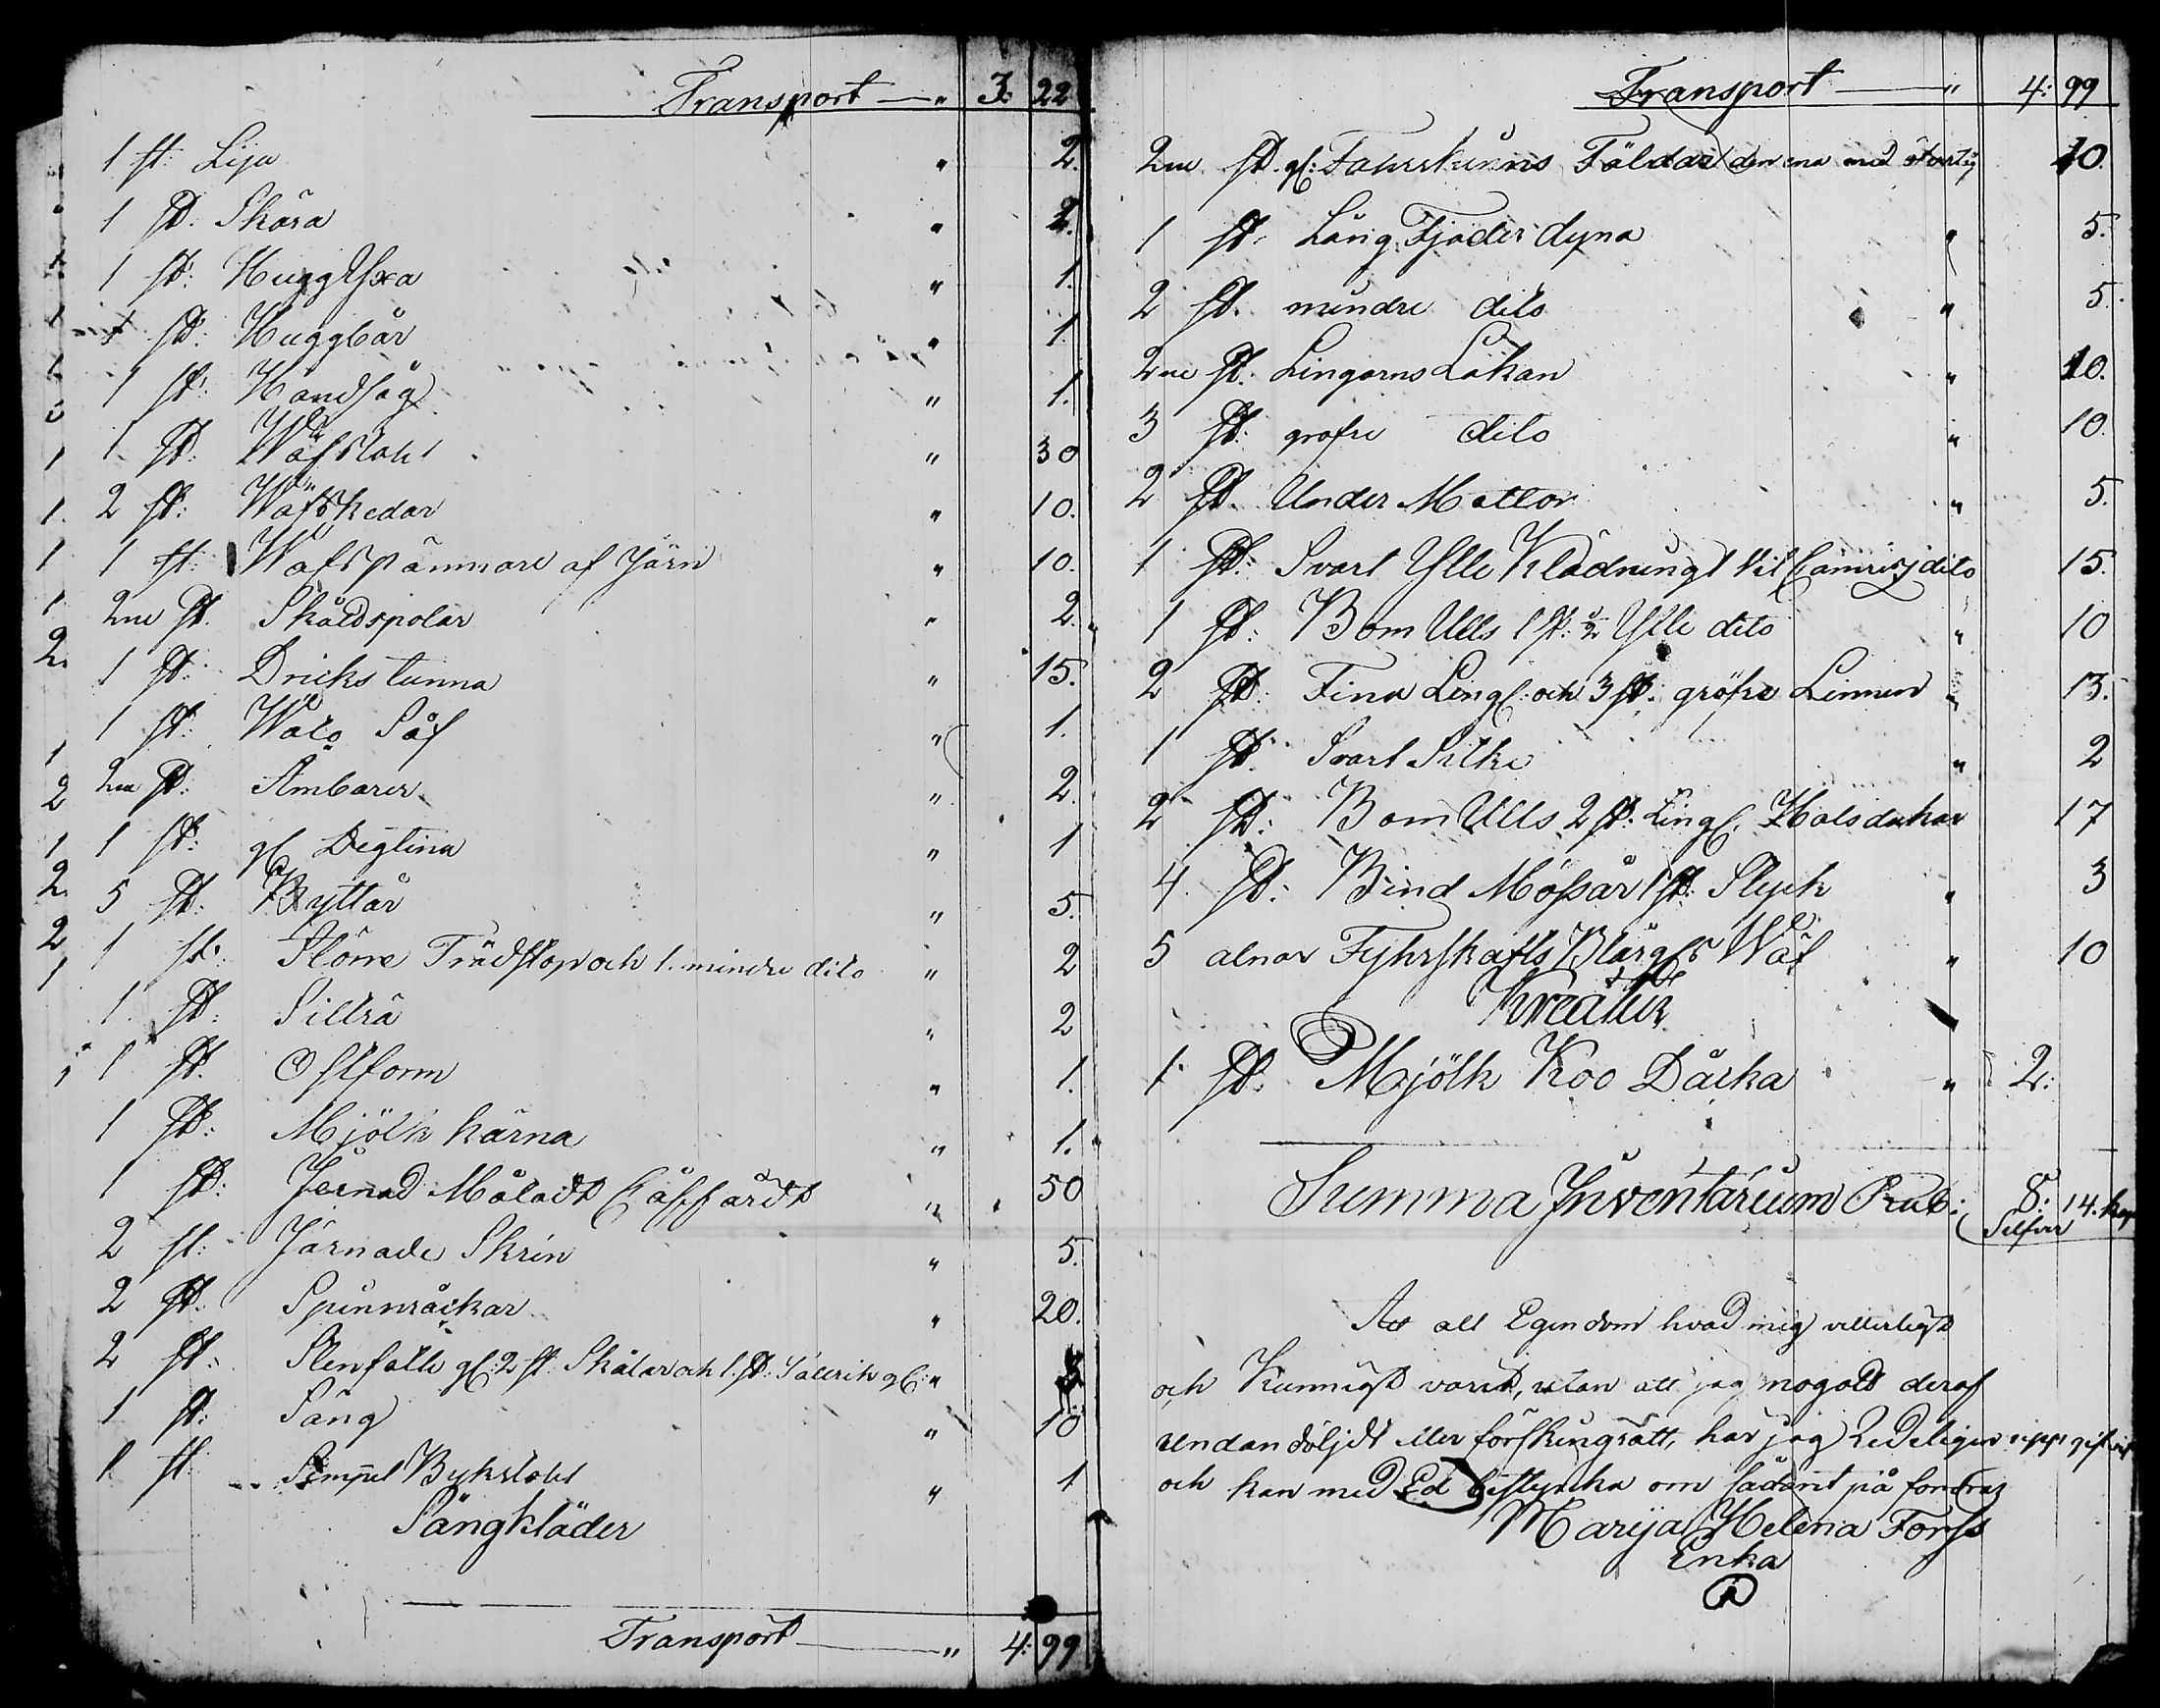 Transport — " 3: 22
1 st: Lija " 2.
1 st. Skära " 2.
1 st: HuggYxa " 1.
1 st: Huggbår " 1.
1 st: Handsåg " 1.
1 st: Wäfstohl " 30
2 st: Wäfskedar " 10.
1 st: Wäfspännare af Järn " 10.
2ne st. Skåldspolar " 2.
1 st: Dricks tunna " 15.
1 st: Wåro Såf " 1.
2ne st: Ämbarer " 2.
1 st: gl Degtina " 1
5 st: Byttår " 5.
1 st: Större Trädstop och 1. mindre dito " 2
1. st: Siltrå " 2
1 st. Ostform " 1.
1 st: Mjölk kärna " 1.
1 st: Järnad Måladt Cåffärdt " 50
2 st: Järnade Skrin " 5.
2 st: Spinnråckar " 20.
2 st: Stenfatt gl: 2 st: Skålar och 1. st: Tallrik gl: " 3
1 st: Säng " 10
1 st: Simpel Bykstohl " 1
Sängkläder
Transport — " 4: 99
Transport — " 4: 99
2ne st. gl: Fahrskinns Fäldar den ena med 10.
1 st. Lång Fjäder dyna " 5.
2 st. mindre dito " 5.
2ne st. Lingarns Lakan " 10.
3 st: grofre dito " 10.
2 st. Under Mattor " 5.
1 st: Svart Ylle Klädning 1 dito 15.
1 st: Bom Ulls 1 st: ½ Ylle dito " 10
2 st: Fina Ling: och 3 st: gröfre Linnen " 13.
1 st. Svart Silke " 2
2 st: Bom Ulls 2 st: Ling: Halsdukar 17
4. st: Bind Mössår 1 st: Styck " 3
5 alnar Fyhrskafts Blårg:s Wäf " 10
Kreatur
1 st: Mjölk Koo Dåcka " 2:
Summa Inventarium Rub: 8: 14. kop
Silfver
Att all Egendom hvad mig vitterligt
och Kunnigt varit, utan att jag nogott deraf
undandöljdt eller förskingratt, har jag Redeligen uppgifvit
och kan med Ed bestyrcka om sådant på fordras
Marija Helena Forss
Enka